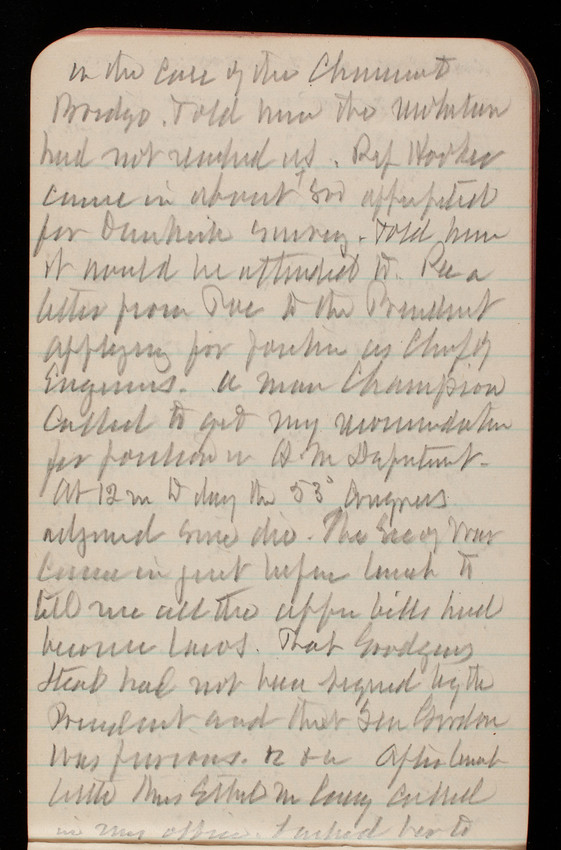 in the case of the
Bridge. Told him the resolution
had not reached us. Rep Hooker
came in about
for Dunkirk survey. Told him
it would be attended to. Rec a
letter from Poe to the President
applying for position as Chief of
Engineers. A man Champion
called to get my recommendation
for position in Q M Department.
At 12 m to day the 53d Congress
adjourned sine die. The Sec of War
came in just before lunch to
tell me all the appn bills had
become laws. That
Steal had not been signed by the
President and that Gen Gordon
was furious. After lunch
little Miss Ethel called
in my office. I asked her to